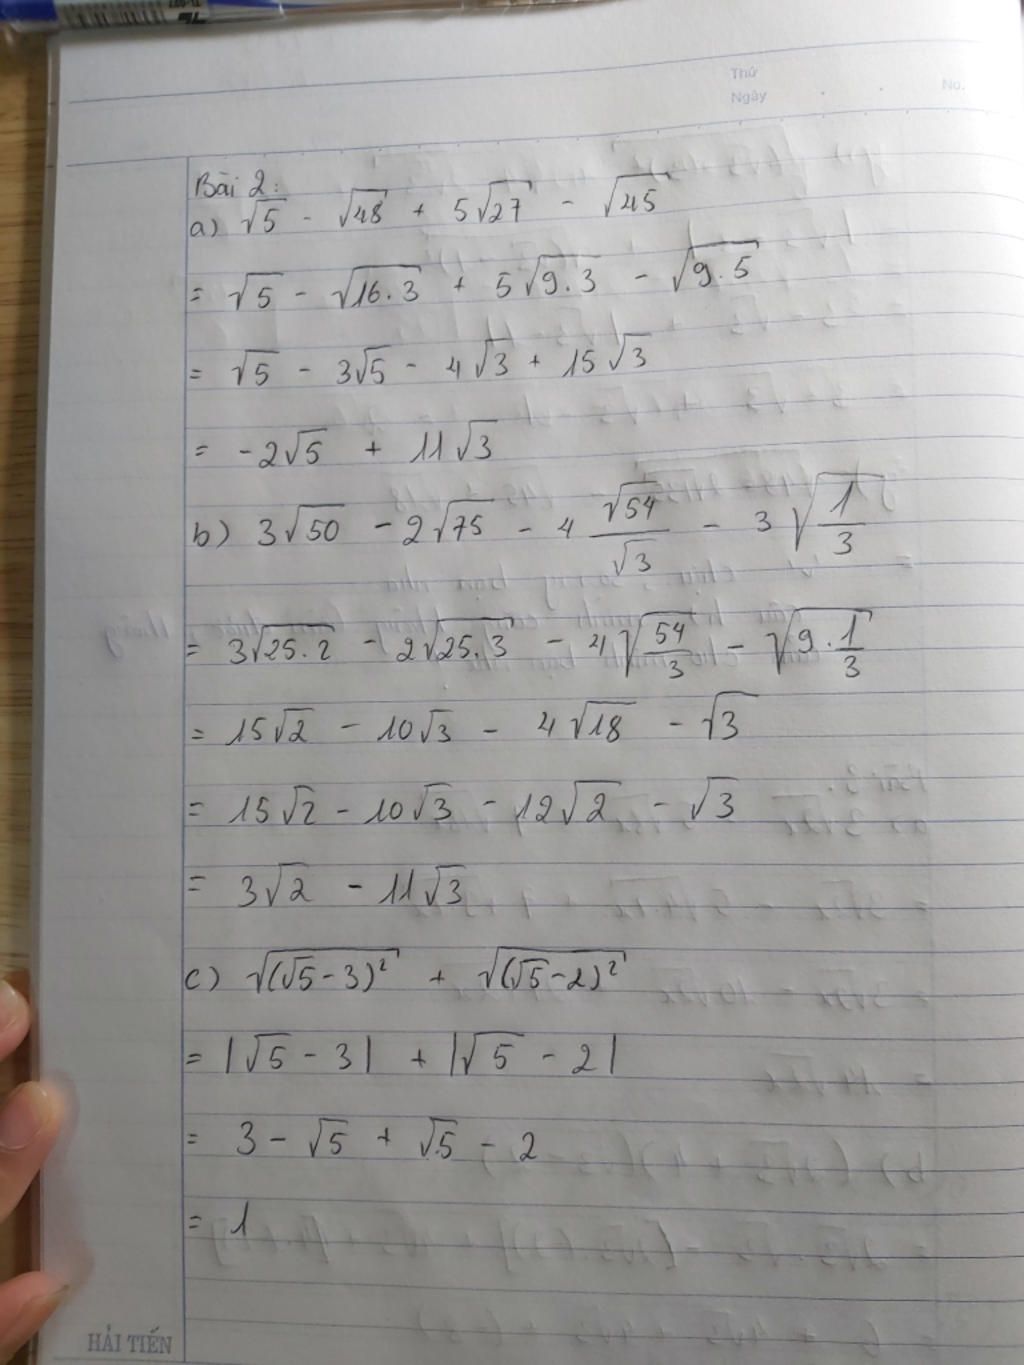 Thứ
Ngày
No.
Bài 2:
a) √5 - √48 + 5√27 - √45
= √5 - √16.3 + 5√9.3 - √9.5
= √5 - 3√5 - 4√3 + 15√3
= -2√5 + 11√3
b) 3√50 - 2√75 - 4 √54/√3 - 3√(1/3)
= 3√25.2 - 2√25.3 - 4√(54/3) - √(9.1/3)
= 15√2 - 10√3 - 4√18 - √3
= 15√2 - 10√3 - 12√2 - √3
= 3√2 - 11√3
c) √(√5-3)² + √(√5-2)²
= |√5 - 3| + |√5 - 2|
= 3 - √5 + √5 - 2
= 1
HẢI TIẾN